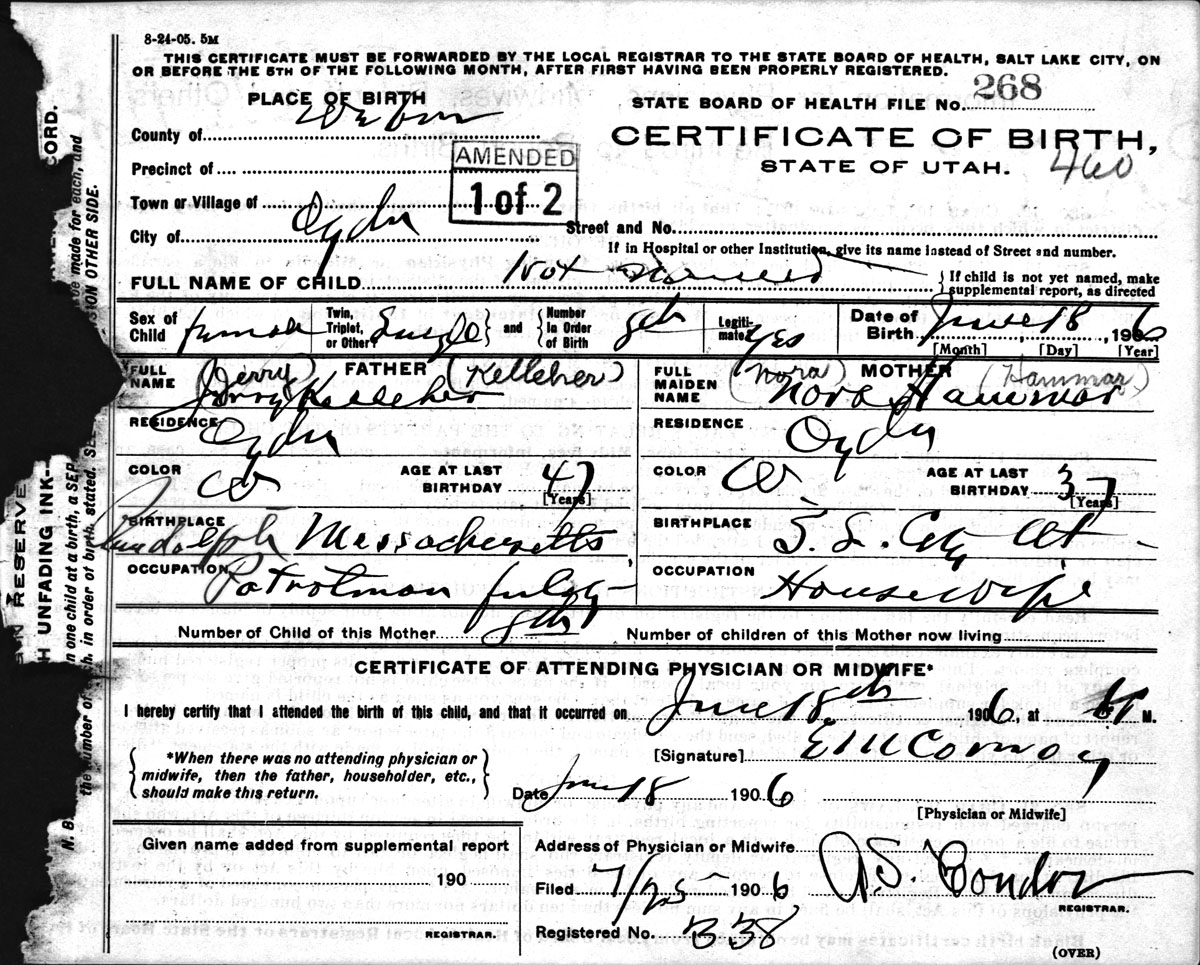 8-24-05. 5M
THIS CERTIFICATE MUST BE FORWARDED BY THE LOCAL REGISTRAR TO THE STATE BOARD OF HEALTH, SALT LAKE CITY, ON
OR BEFORE THE 5TH OF THE FOLLOWING MONTH, AFTER FIRST HAVING BEEN PROPERLY REGISTERED.
PLACE OF BIRTH
STATE BOARD OF HEALTH FILE No. 268
County of Weber
CERTIFICATE OF BIRTH,
STATE OF UTAH. 460
Precinct of
AMENDED
1 of 2
Town or Village of
City of Ogden
Street and No.
If in Hospital or other Institution, give its name instead of Street and number.
FULL NAME OF CHILD Not Named
{ If child is not yet named, make
supplemental report, as directed
Sex of Child Female
Twin, Triplet, or Other Single } and { Number in Order of Birth 9th
Legiti-mate? Yes
Date of Birth June 18, 1906
[Month] [Day] [Year]
FULL NAME FATHER (Jerry) (Kelleher)
Jerry Kelleher
FULL MAIDEN NAME MOTHER (Nora) (Hammar)
Nora Hammar
RESIDENCE Ogden
RESIDENCE Ogden
COLOR W
AGE AT LAST BIRTHDAY 47 [Years]
COLOR W.
AGE AT LAST BIRTHDAY 37 [Years]
BIRTHPLACE Randolph Massachusetts
BIRTHPLACE S. L. City Ut
OCCUPATION Patrolman
OCCUPATION Housewife
Number of Child of this Mother 9th
Number of children of this Mother now living
CERTIFICATE OF ATTENDING PHYSICIAN OR MIDWIFE*
I hereby certify that I attended the birth of this child, and that it occurred on June 18th 1906, at M.
{ *When there was no attending physician or
midwife, then the father, householder, etc.,
should make this return. }
[Signature] E M Conroy
Date June 18 1906
[Physician or Midwife]
Given name added from supplemental report
190
REGISTRAR.
Address of Physician or Midwife
Filed 7/25 1906, A.S. Condon
REGISTRAR.
Registered No. 338
(OVER)
CORD.
be made for each, and
SION OTHER SIDE.
RESERVE
H UNFADING INK
N. B.
n one child at a birth, a SEP
the number of
h, in order of birth, stated. SE